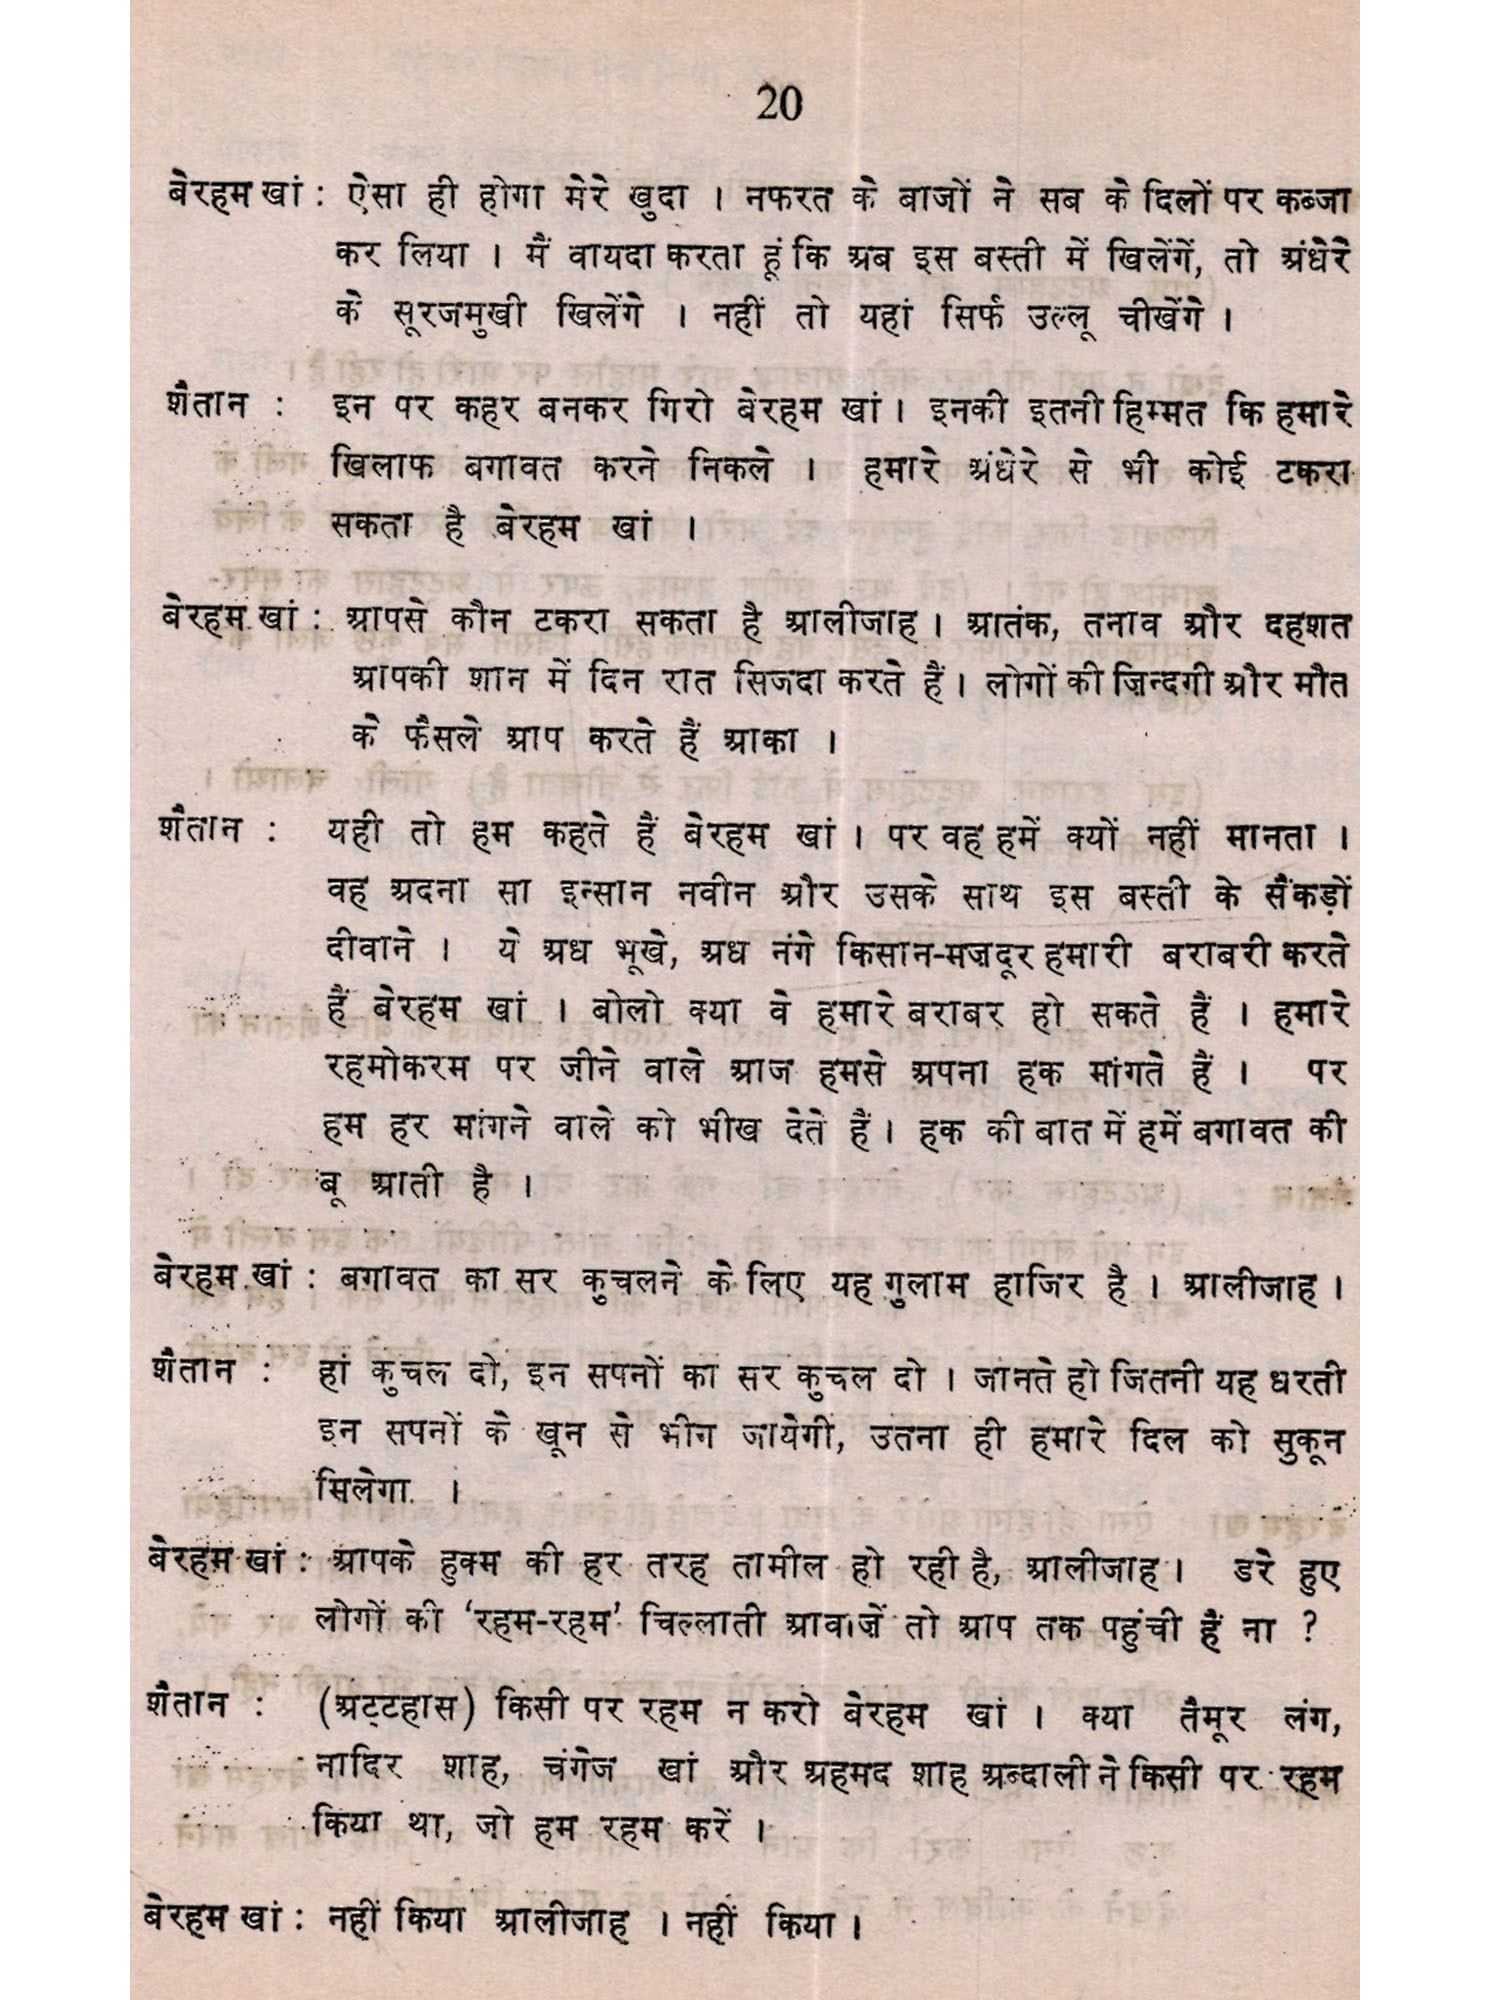 20
बेरहम खां : ऐसा ही होगा मेरे खुदा । नफरत के बाजों ने सब के दिलों पर कब्जा
कर लिया । मैं वायदा करता हूं कि अब इस बस्ती में खिलेंगें, तो अंधेरे
के सूरजमुखी खिलेंगे । नहीं तो यहां सिर्फ उल्लू चीखेंगे ।
शैतान : इन पर कहर बनकर गिरो बेरहम खां । इनकी इतनी हिम्मत कि हमारे
खिलाफ बगावत करने निकले । हमारे अंधेरे से भी कोई टकरा
सकता है बेरहम खां ।
बेरहम खां : आपसे कौन टकरा सकता है आलीजाह । आतंक, तनाव और दहशत
आपकी शान में दिन रात सिजदा करते हैं । लोगों की ज़िन्दगी और मौत
के फैसले आप करते हैं आका ।
शैतान : यही तो हम कहते हैं बेरहम खां । पर वह हमें क्यों नहीं मानता ।
वह अदना सा इन्सान नवीन और उसके साथ इस बस्ती के सैंकड़ों
दीवाने । ये अध भूखे, अध नंगे किसान-मज़दूर हमारी बराबरी करते
हैं बेरहम खां । बोलो क्या वे हमारे बराबर हो सकते हैं । हमारे
रहमोकरम पर जीने वाले आज हमसे अपना हक मांगते हैं । पर
हम हर मांगने वाले को भीख देते हैं । हक की बात में हमें बगावत की
बू आती है ।
बेरहम खां : बगावत का सर कुचलने के लिए यह गुलाम हाजिर है । आलीजाह ।
शैतान : हां कुचल दो, इन सपनों का सर कुचल दो । जानते हो जितनी यह धरती
इन सपनों के खून से भीग जायेगी, उतना ही हमारे दिल को सुकून
मिलेगा ।
बेरहम खां : आपके हुक्म की हर तरह तामील हो रही है, आलीजाह । डरे हुए
लोगों की ‘रहम-रहम’ चिल्लाती आवाज़ें तो आप तक पहुंची हैं ना ?
शैतान : (अट्टहास) किसी पर रहम न करो बेरहम खां । क्या तैमूर लंग,
नादिर शाह, चंगेज खां और अहमद शाह अब्दाली ने किसी पर रहम
किया था, जो हम रहम करें ।
बेरहम खां : नहीं किया आलीजाह । नहीं किया ।